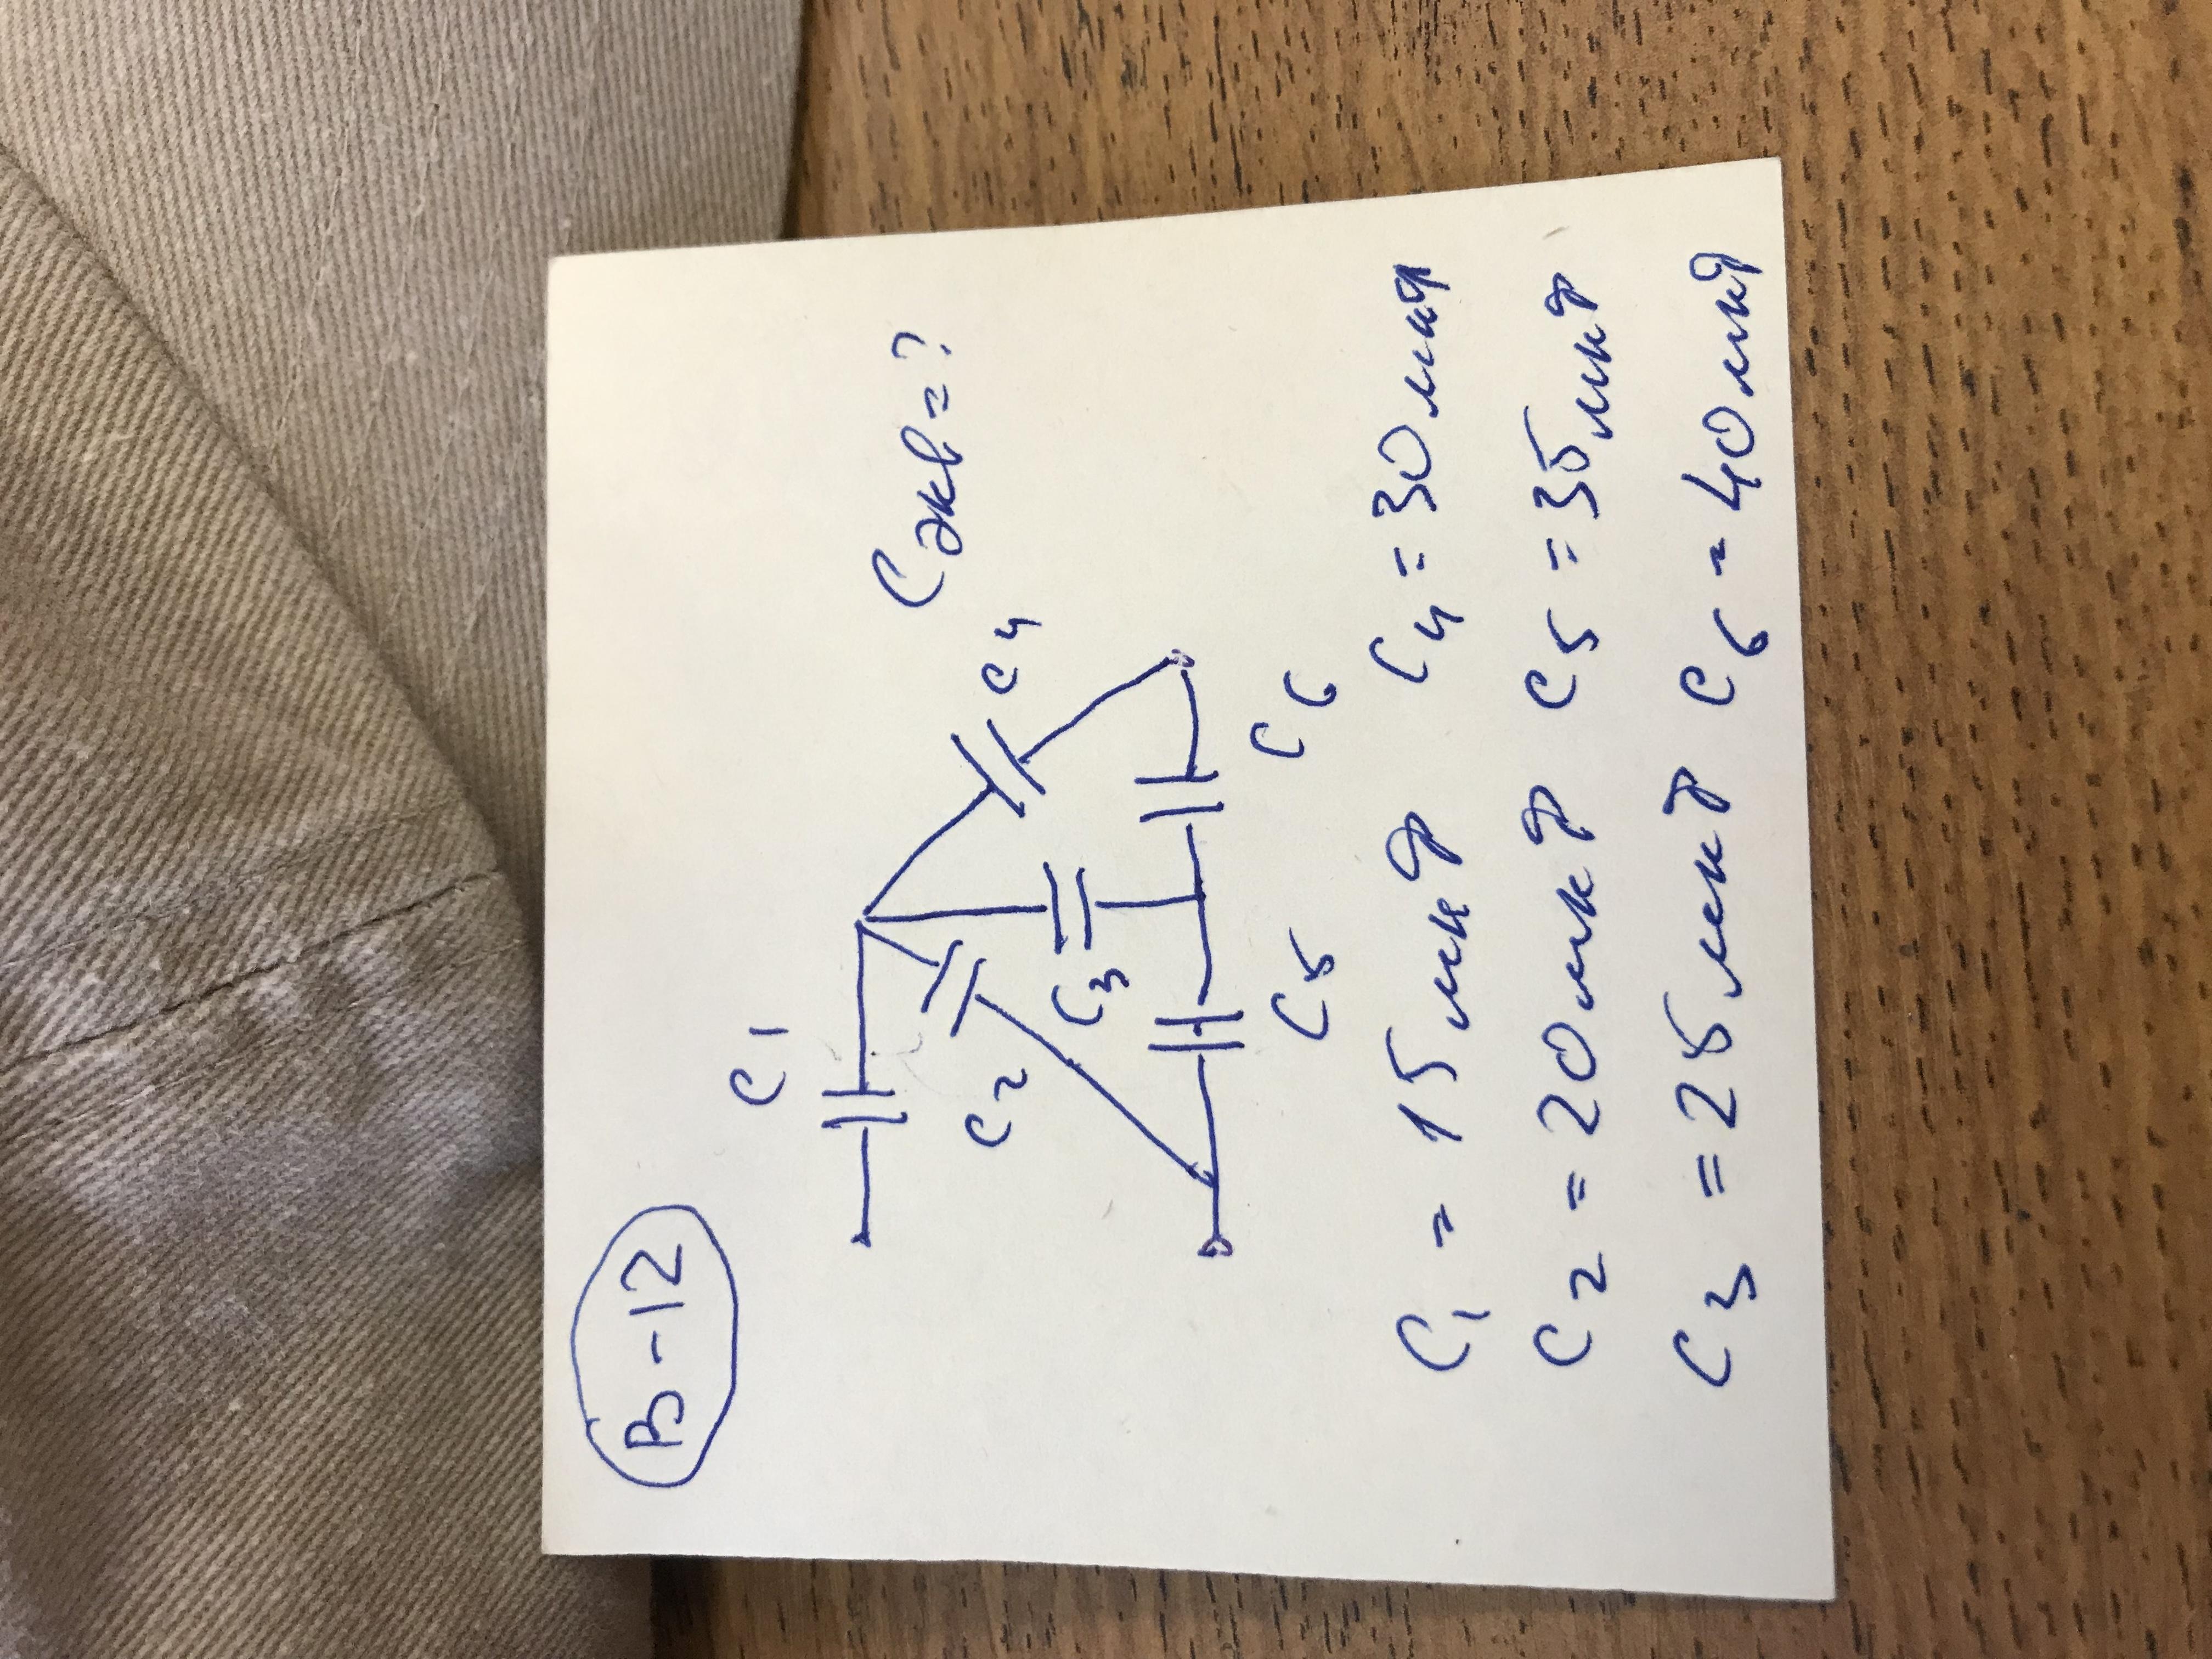 В-12
C1
C2
C3
C4
Cэкв=?
C5
C6
C1 = 15 мкФ C4 = 30 мкФ
C2 = 20 мкФ C5 = 35 мкФ
C3 = 25 мкФ C6 - 40 мкФ